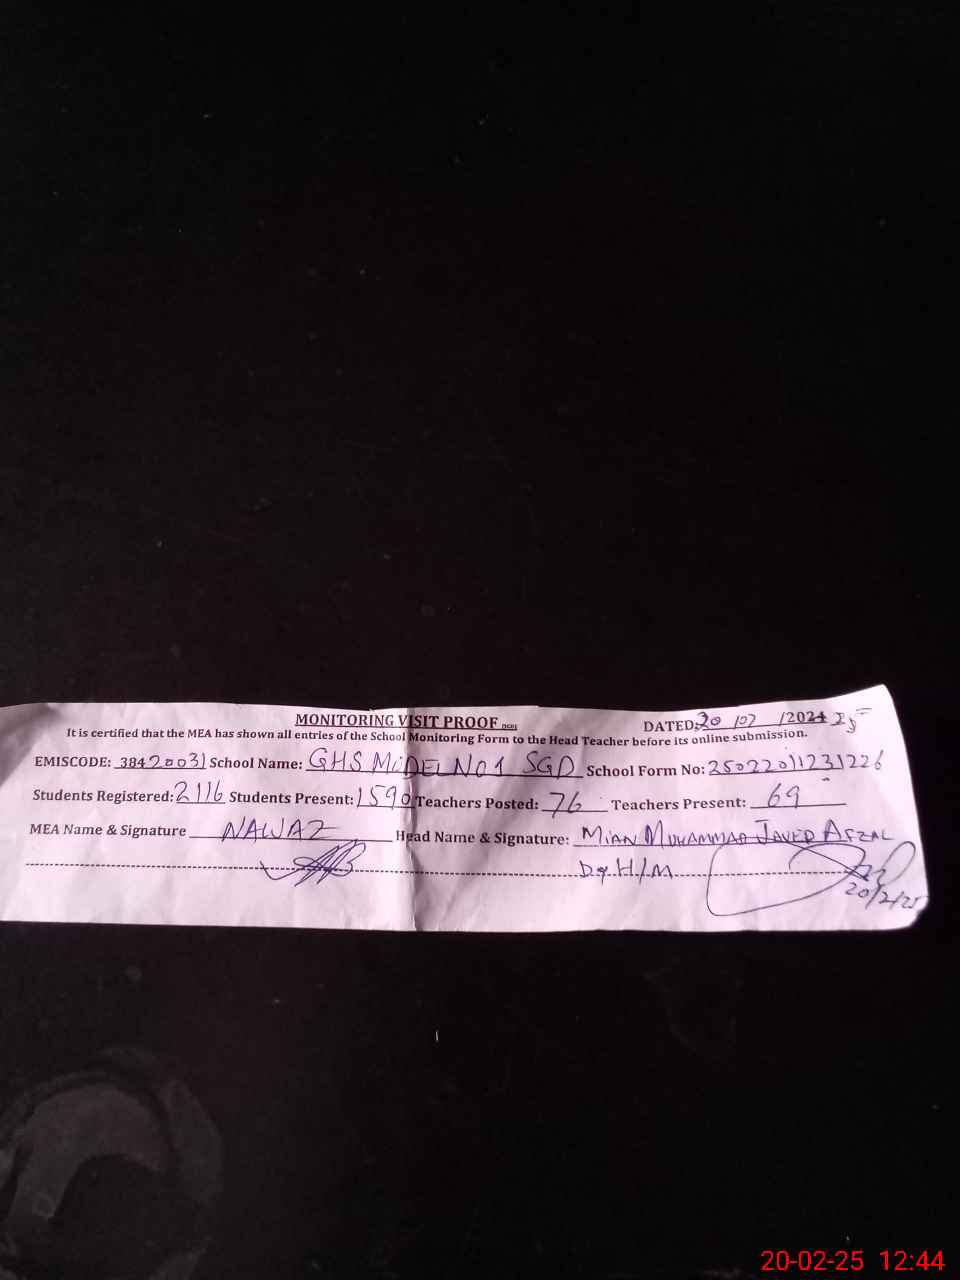 MONITORING VISIT PROOF
DATED: 20 /02 /2024 25
It is certified that the MEA has shown all entries of the School Monitoring Form to the Head Teacher before its online submission.
EMISCODE: 38420031 School Name: GHS MODEL NO 1 SGD School Form No: 25022011231226
Students Registered: 2116 Students Present: 1590 Teachers Posted: 76 Teachers Present: 69
MEA Name & Signature NAWAZ Head Name & Signature: MIAN MUHAMMAD JAVED AFZAL
Dy. H/M
20/2/25
20-02-25 12:44